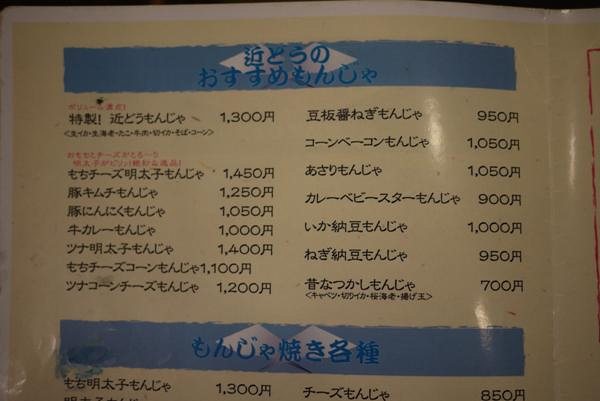 近どうの
おすすめもんじゃ
ボリューム満点！
特製！ 近どうもんじゃ 1,300円
＜生イカ・生海老・たこ・牛肉・切イカ・そば・コーン＞
おもちとチーズがとろ〜り
明太子がピリッ！絶妙な逸品！
もちチーズ明太子もんじゃ 1,450円
豚キムチもんじゃ 1,250円
豚にんにくもんじゃ 1,050円
牛カレーもんじゃ 1,000円
ツナ明太子もんじゃ 1,400円
もちチーズコーンもんじゃ 1,100円
ツナコーンチーズもんじゃ 1,200円
豆板醤ねぎもんじゃ 950円
コーンベーコンもんじゃ 1,050円
あさりもんじゃ 1,050円
カレーベビースターもんじゃ 900円
いか納豆もんじゃ 1,000円
ねぎ納豆もんじゃ 950円
昔なつかしもんじゃ 700円
＜キャベツ・切りイカ・桜海老・揚げ玉＞
もんじゃ焼き各種
もち明太子もんじゃ 1,300円
チーズもんじゃ 850円